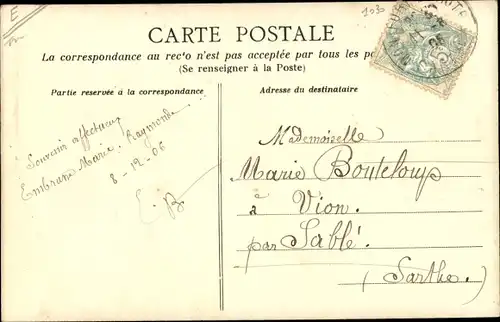 E
1030
CARTE POSTALE
La correspondance au recto n'est pas acceptée par tous les
(Se renseigner à la Poste)
Partie reservée à la correspondance
Adresse du destinataire
Souvenir affectueux
Marie Raymonde
8-12-06
E.B
Mademoiselle
Marie Bouteloup
à Vion.
par Sablé.
(Sarthe.)